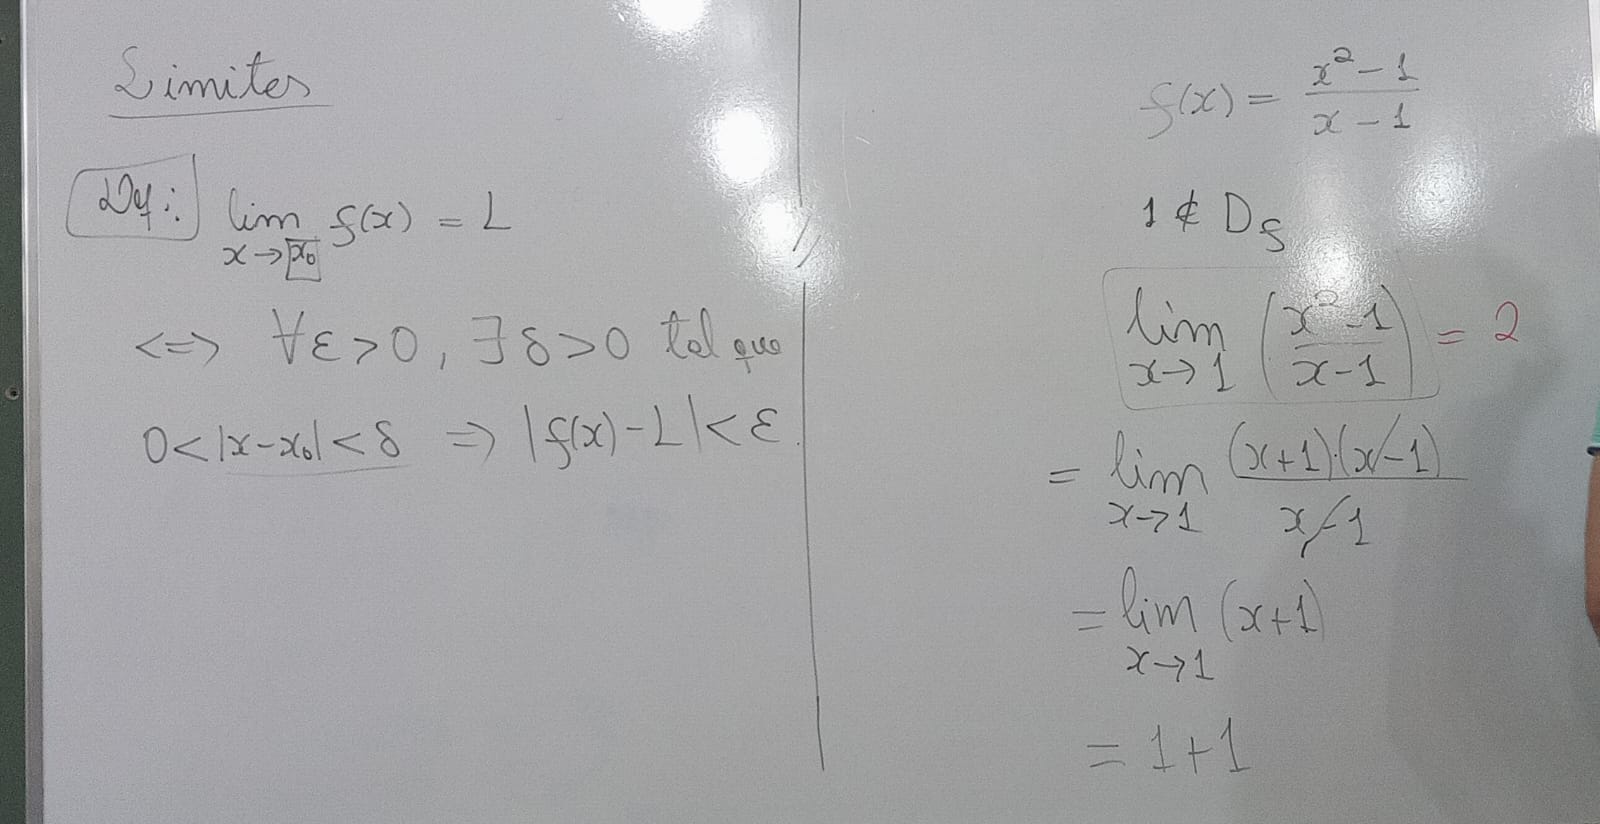 Limites
Def: lim f(x) = L
x→x₀
<=> ∀ε>0, ∃δ>0 tal que
0<|x-x₀|<δ => |f(x)-L|<ε.
f(x) = (x²-1)/(x-1)
1 ∉ D_f
lim_{x→1} ((x²-1)/(x-1)) = 2
= lim_{x→1} ((x+1)·(x-1))/(x-1)
= lim_{x→1} (x+1)
= 1+1